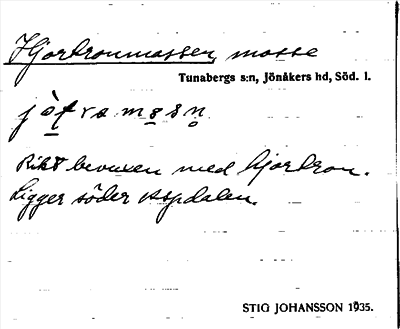 Hjortronmossen, mosse
Tunabergs s:n, Jönåkers hd, Söd. l.
Rikt bevuxen med hjortron.
Ligger söder Aspdalen.
STIG JOHANSSON 1935.